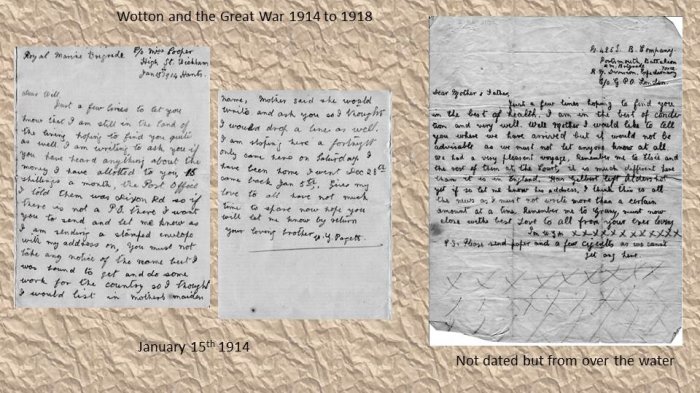 Wotton and the Great War 1914 to 1918
Royal Marine Brigade
C/o Miss Cooper
High St. Wickham
Hants.
Dear Will,
Just a few lines to let you
know that I am still in the land of
the living hoping to find you quite
as well. I am writing to ask you if
you have heard anything about the
money I have allotted to you 15
shillings a month, the Post Office
I told them was Dixon Rd so if
there is not a P.O. there I want
you to send and let me know &
I am sending a stamped envelope
with my address on, you must not
take any notice of the name but I
was bound to get and do some
work for the country so I thought
I would list in Mothers maiden
name, Mother said she would
write and ask you so I thought
I would drop a line as well.
I am stoping here a fortnight
only came here on Saturday I
have been home I went Dec 28th
came back Jan 5th. Give my
love to all have not much
time to spare now hope you
will let me know by return
your loving brother
Pagett.
B Company.
Portsmouth Battalion
R.N. Division,
C/o G.P.O. London.
Dear Mother & Father,
Just a few lines hoping to find you
in the best of health, I am in the best of condi-
tion and very well. Well Mother I would like to tell
you where we have arrived but it would not be
advisable as we must not let anyone know at all.
We had a very pleasent voyage, Remember me to Elsie and
the rest of them at the Court, it is much different here
than it is in England. Has Walter left Aldershot
yet if so let me know his address, I think this is all
the news as I must not write more than a certain
amount at a time. Remember me to Granny, must now
close with best love to all from your ever loving
Son
X X X X X X X X X X X
P.S. Please send paper and a few cigaretts as we cannot
get any here.
January 15th 1914
Not dated but from over the water